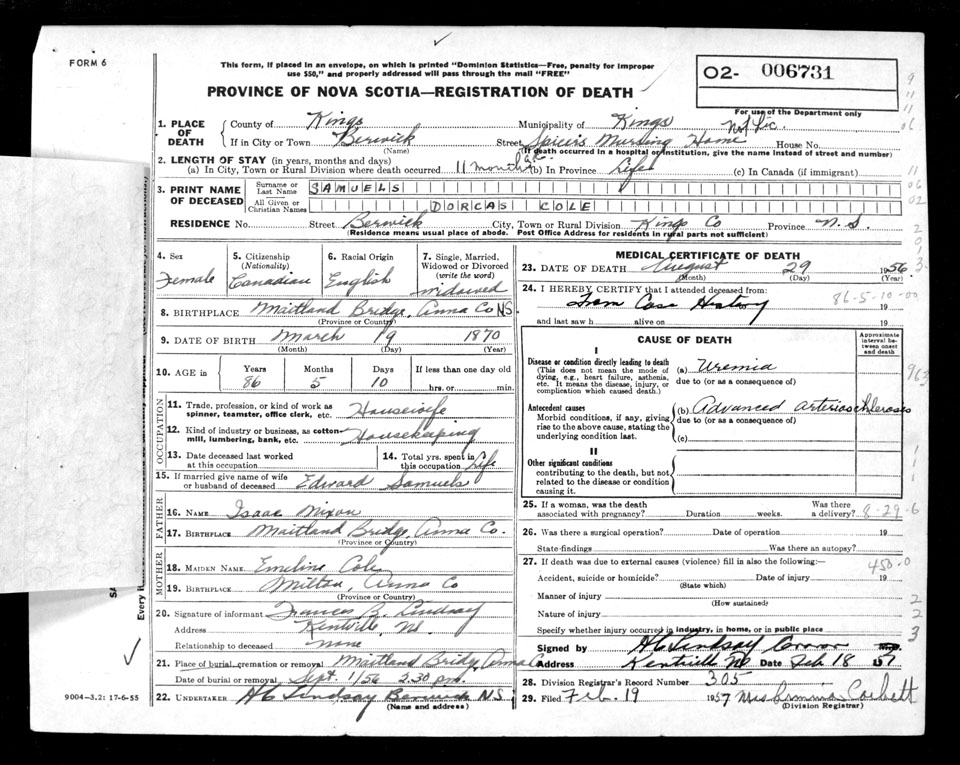 FORM 6
This form, if placed in an envelope, on which is printed "Dominion Statistics—Free, penalty for improper
use $50," and properly addressed will pass through the mail "FREE"
PROVINCE OF NOVA SCOTIA—REGISTRATION OF DEATH
O2- 006731
For use of the Department only
1. PLACE OF DEATH
County of Kings Municipality of Kings
If in City or Town Berwick Street Spicers Nursing Home House No.
Not Lic.
(Name) (If death occurred in a hospital or institution, give the name instead of street and number)
2. LENGTH OF STAY (in years, months and days)
(a) In City, Town or Rural Division where death occurred 11 months (b) In Province Life (c) In Canada (if immigrant)
3. PRINT NAME OF DECEASED
Surname or Last Name SAMUELS
All Given or Christian Names DORCAS COLE
RESIDENCE No. Street Berwick City, Town or Rural Division Kings Co Province N.S.
(Residence means usual place of abode. Post Office Address for residents in rural parts not sufficient)
4. Sex Female
5. Citizenship (Nationality) Canadian
6. Racial Origin English
7. Single, Married, Widowed or Divorced (write the word) widowed
8. BIRTHPLACE Maitland Bridge, Anna Co NS
(Province or Country)
9. DATE OF BIRTH March 19 1870
(Month) (Day) (Year)
10. AGE in Years 86 Months 5 Days 10 If less than one day old hrs. or min.
OCCUPATION
11. Trade, profession, or kind of work as spinner, teamster, office clerk, etc. Housewife
12. Kind of industry or business, as cotton mill, lumbering, bank, etc. Housekeeping
13. Date deceased last worked at this occupation
14. Total yrs. spent in this occupation Life
15. If married give name of wife or husband of deceased Edward Samuels
FATHER
16. NAME Isaac Nixon
17. BIRTHPLACE Maitland Bridge, Anna Co.
(Province or Country)
MOTHER
18. MAIDEN NAME Emeline Cole
19. BIRTHPLACE Milton, Anna Co
(Province or Country)
20. Signature of informant Frances B. Lindsay
Address Kentville, NS
Relationship to deceased none
21. Place of burial, cremation or removal Maitland Bridge, Anna Co
Date of burial or removal Sept. 1/56 2.30 pm.
22. UNDERTAKER H C Lindsay Berwick N.S.
(Name and address)
9004—3.2: 17-6-55
MEDICAL CERTIFICATE OF DEATH
23. DATE OF DEATH August 29 1956
(Month) (Day) (Year)
24. I HEREBY CERTIFY that I attended deceased from:
From Case History 19
86-5-10-00
and last saw h alive on 19
CAUSE OF DEATH
Approximate interval between onset and death
I
Disease or condition directly leading to death
(This does not mean the mode of dying, e.g., heart failure, asthenia, etc. It means the disease, injury, or complication which caused death.)
(a) Uremia
due to (or as a consequence of)
Antecedent causes
Morbid conditions, if any, giving rise to the above cause, stating the underlying condition last.
(b) Advanced arteriosclerosis
due to (or as a consequence of)
(c)
II
Other significant conditions
contributing to the death, but not related to the disease or condition causing it.
25. If a woman, was the death associated with pregnancy? Duration weeks. Was there a delivery? 8-29-6
26. Was there a surgical operation? Date of operation 19
State-findings Was there an autopsy?
27. If death was due to external causes (violence) fill in also the following:—
450-0
Accident, suicide or homicide? Date of injury 19
(State which)
Manner of injury
(How sustained)
Nature of injury
Specify whether injury occurred in industry, in home, or in public place
Signed by H C Lindsay Coroner M.D.
Address Kentville NS Date Feb 18 1957
28. Division Registrar's Record Number 305
29. Filed Feb. 19 1957 Mrs Corbett
(Division Registrar)